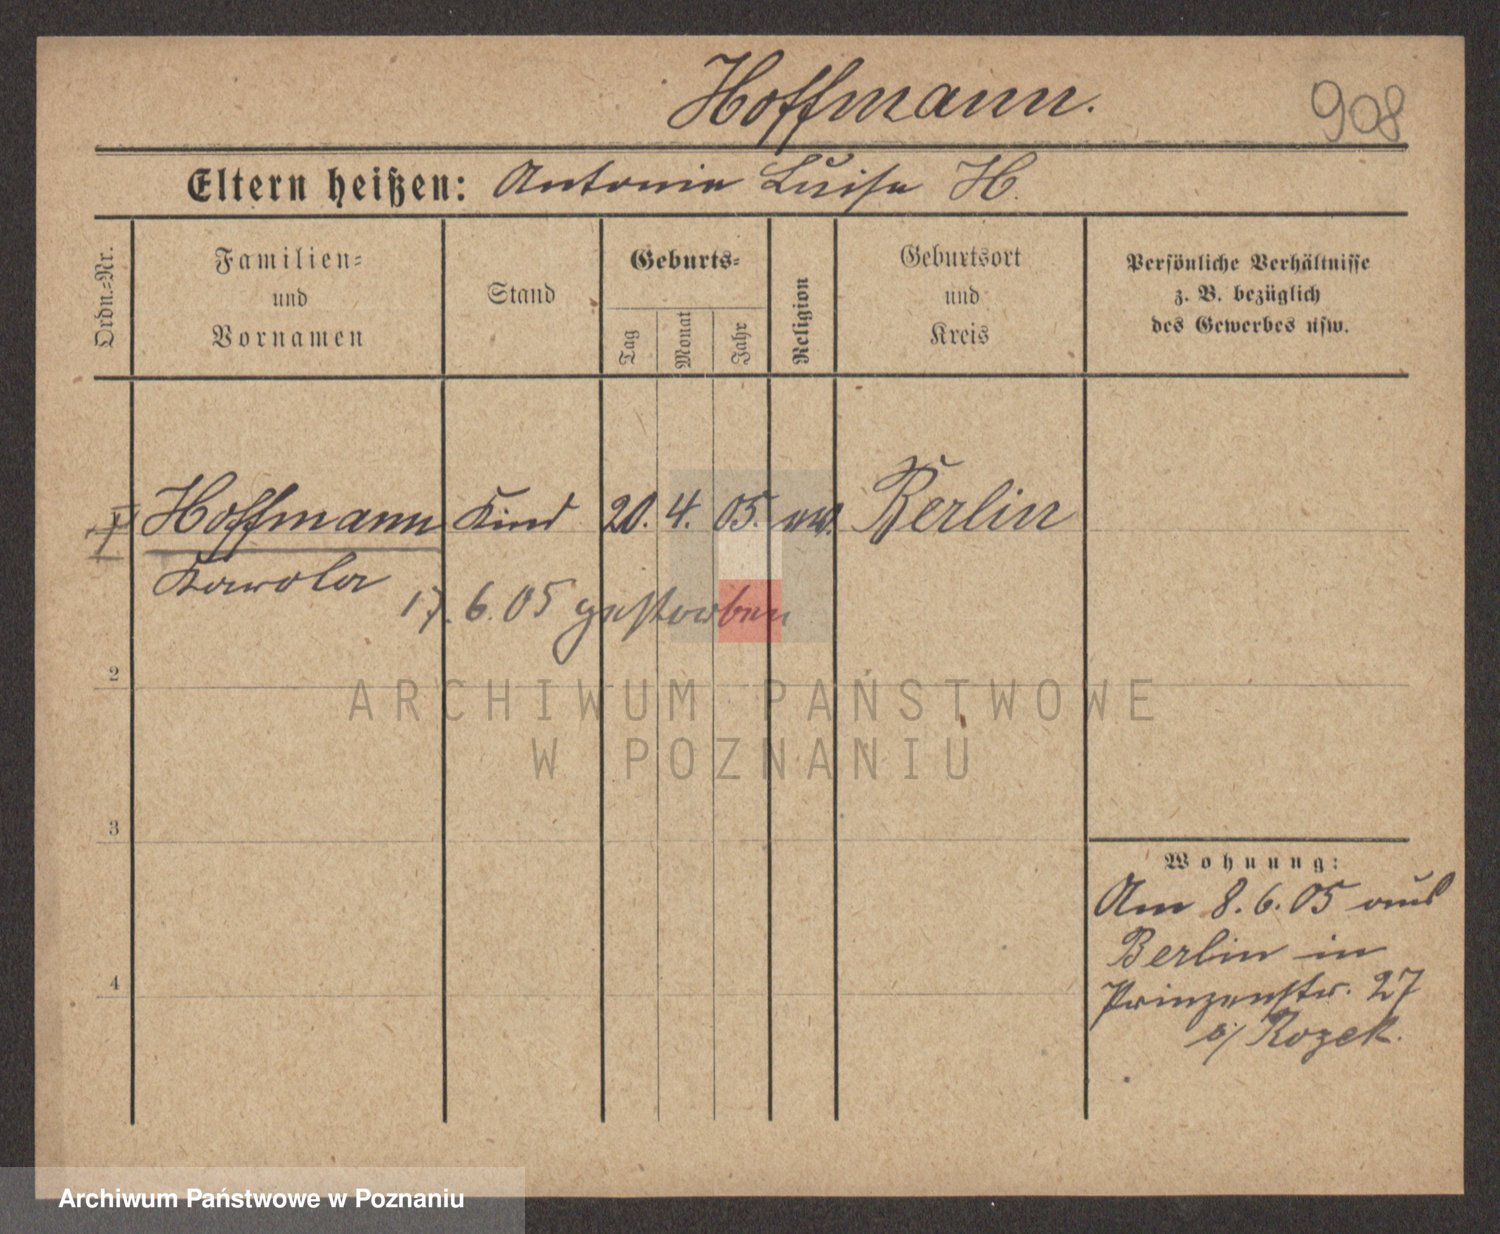 Hoffmann.
908
Eltern heißen: Antonie Luise H.
Ordn.-Nr.
Familien-
und
Vornamen
Stand
Geburts-
Tag
Monat
Jahr
Religion
Geburtsort
und
Kreis
Persönliche Verhältnisse
z. B. bezüglich
des Gewerbes usw.
1 Hoffmann Kind 20. 4. 05. ev. Berlin
Karola
17. 6. 05 gestorben
2
ARCHIWUM PAŃSTWOWE
W POZNANIU
3
Wohnung:
Am 8. 6. 05 aus
Berlin in
Prinzenstr. 27
b/ Rozek.
4
Archiwum Państwowe w Poznaniu